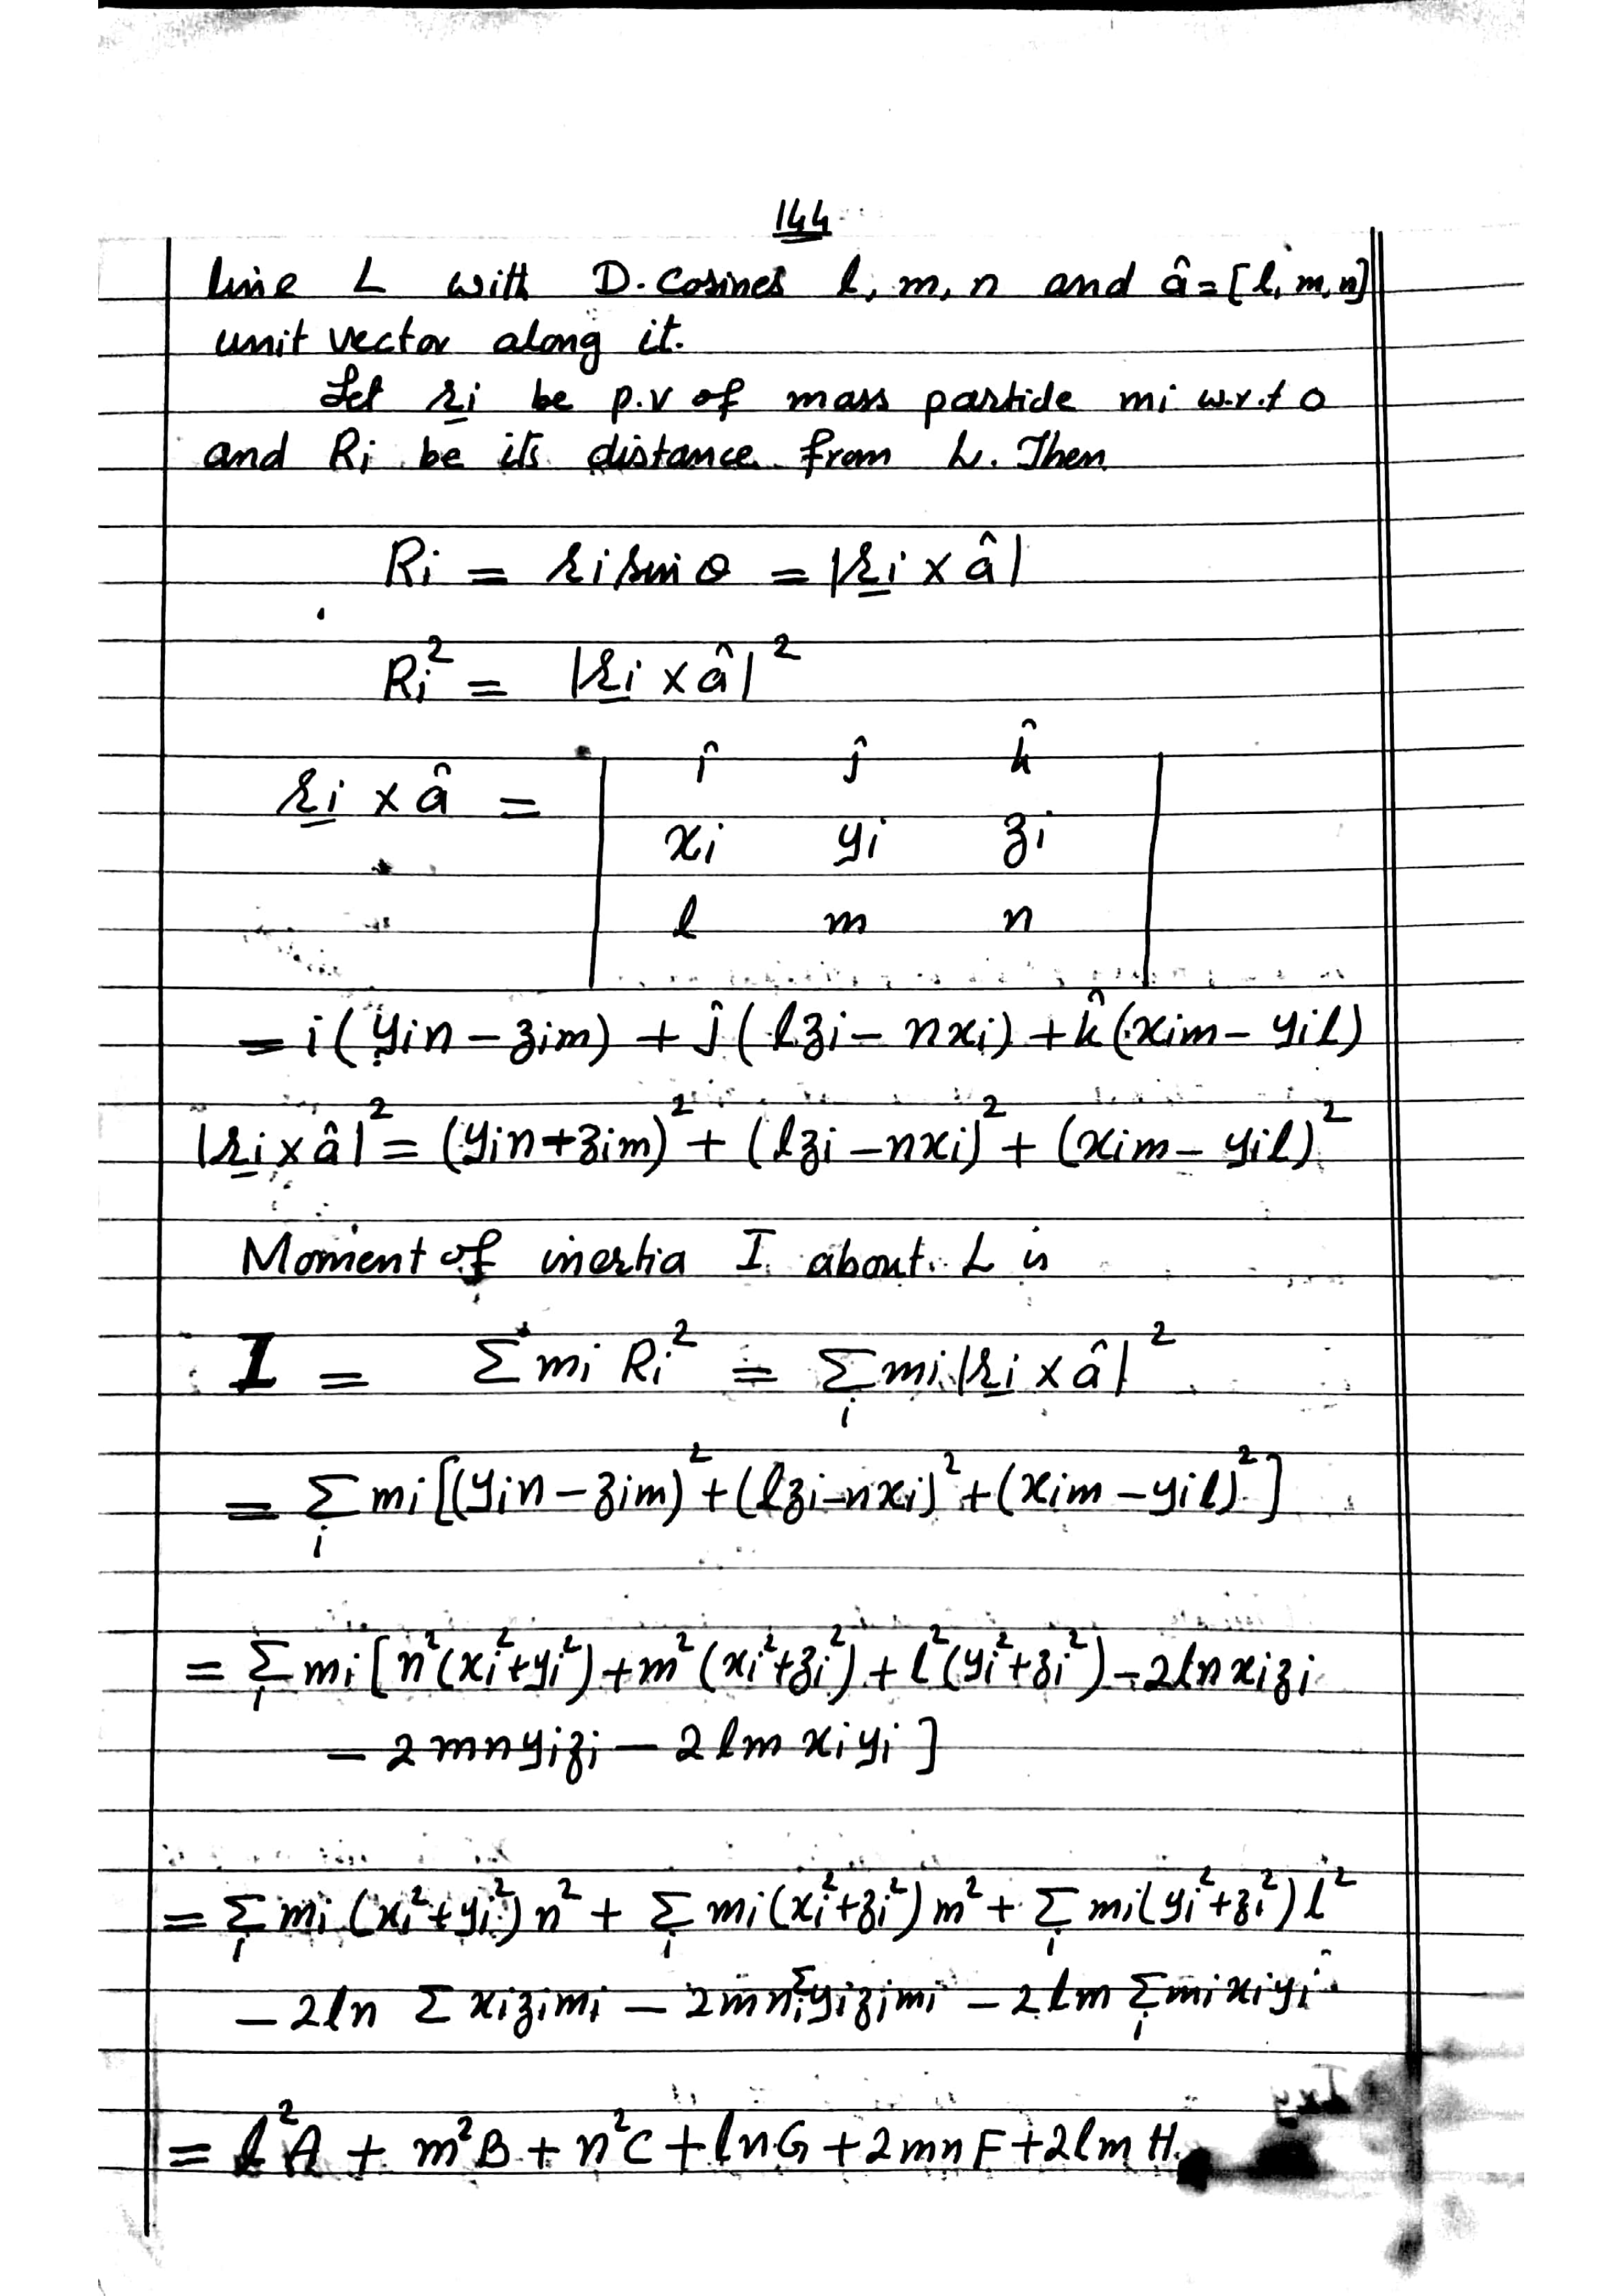 144
line L with D. Cosines l, m, n and â = [l, m, n]
unit vector along it.
Let ri be p.v of mass particle mi w.r.t o
and Ri be its distance from L. Then
Ri = ri sin θ = |ri × â|
Ri² = |ri × â|²
ri × â = | î ĵ k̂ |
| xi yi zi |
| l m n |
= i(yin − zim) + ĵ(lzi − nxi) + k̂(xim − yil)
|ri × â|² = (yin + zim)² + (lzi − nxi)² + (xim − yil)²
Moment of inertia I about L is
I = Σ mi Ri² = Σi mi |ri × â|²
= Σi mi [(yin − zim)² + (lzi − nxi)² + (xim − yil)²]
= Σi mi [n²(xi² + yi²) + m²(xi² + zi²) + l²(yi² + zi²) − 2ln xizi
− 2mnyizi − 2lm xiyi]
= Σi mi (xi² + yi²) n² + Σi mi (xi² + zi²) m² + Σi mi (yi² + zi²) l²
− 2ln Σ xizimi − 2mn Σi yizimi − 2lm Σi mixiyi
= l²A + m²B + n²C + lnG + 2mnF + 2lmH.